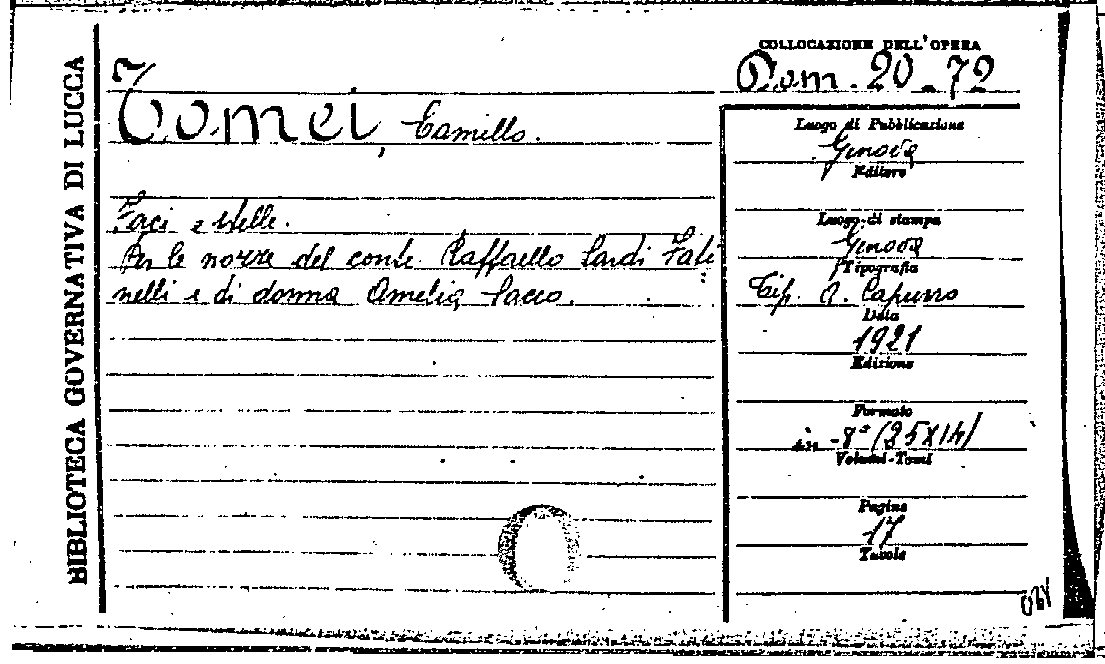 BIBLIOTECA GOVERNATIVA DI LUCCA
COLLOCAZIONE DELL'OPERA
Dom. 20 - 72
Tomei, Camillo.
Faci e stelle.
Per le nozze del conte Raffaello Sardi Fati
nelli e di donna Amelia Sacco.
Luogo di Pubblicazione
Genova
Editore
Luogo di stampa
Genova
Tipografia
Tip. A. Capurro
Data
1921
Edizione
Formato
in -8° (25X14)
Volumi-Tomi
Pagine
17
Tavole